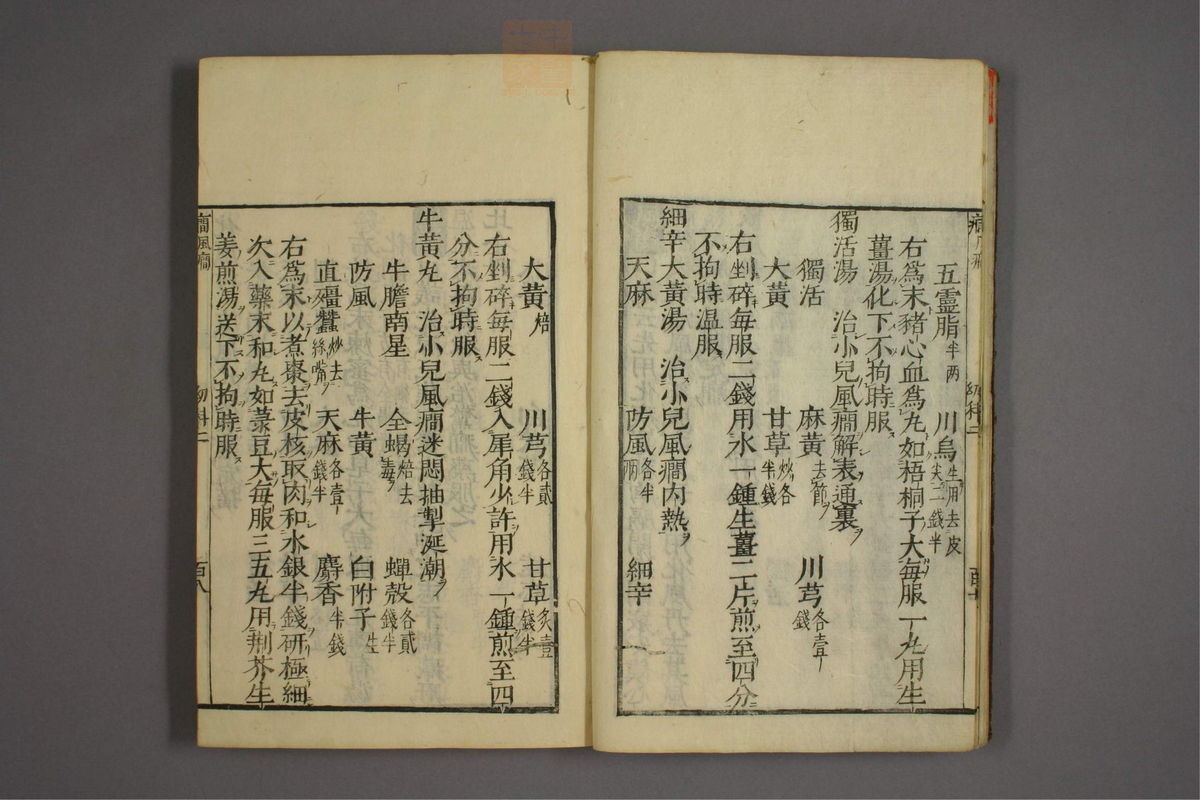 五霊脂半两　川烏生用去皮尖二錢半
右爲末豬心血爲丸如梧桐子大毎服一丸用生
薑湯化下不拘時服
獨活湯　治小兒風癎解表通裏
獨活　麻黃去節　川芎各壹錢
大黃　甘草炒各半錢
右剉碎毎服二錢用水一鍾生薑二片煎至四分
不拘時温服
細辛大黃湯　治小兒風癎内熱
天麻　防風各半兩　細辛
大黃焙　川芎各貳錢半　甘草炙壹錢半
右剉碎毎服二錢入犀角少許用水一鍾煎至四
分不拘時服
牛黃丸　治小兒風癎迷悶抽掣涎潮
牛膽南星　全蝎焙去毒　蟬殼各貳錢半
防風　牛黃　白附子生
直殭蠶炒去絲嘴　天麻各壹錢半　麝香半錢
右爲末以煮棗去皮核取肉和水銀半錢研極細
次入藥末和丸如菉豆大毎服三五丸用荆芥生
姜煎湯送下不拘時服
癎風癎　幼科二　百八